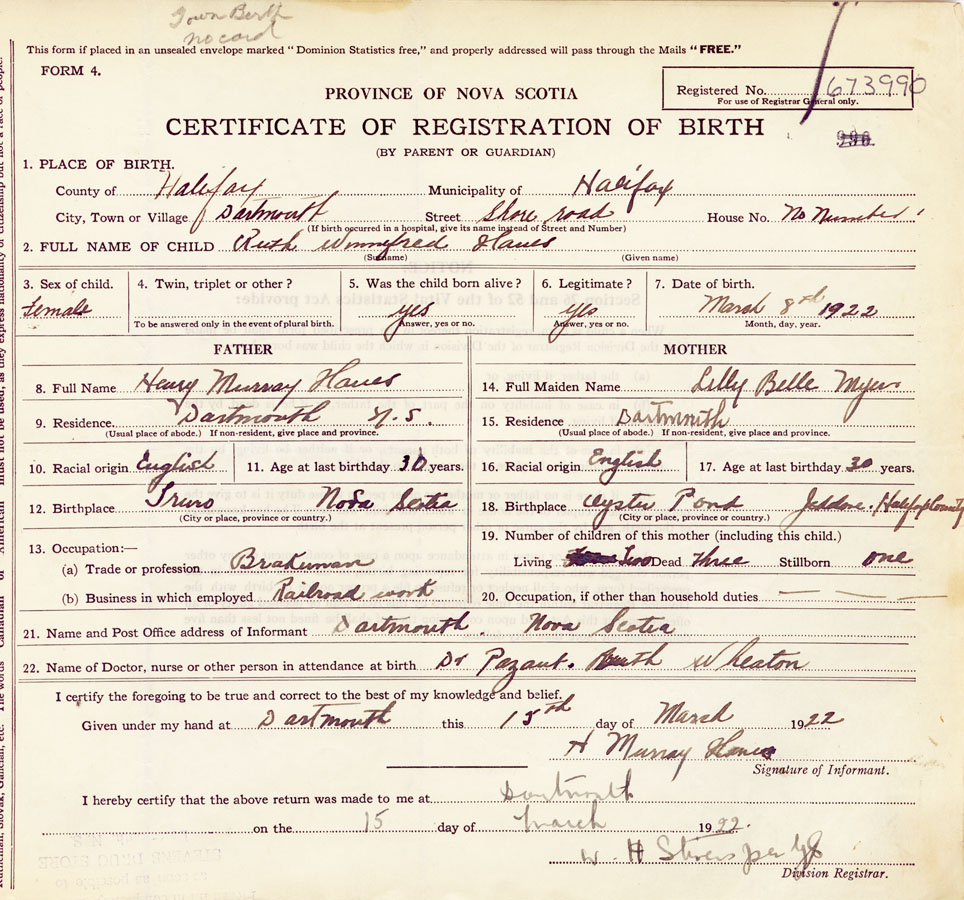 Town Berth
no card
This form if placed in an unsealed envelope marked "Dominion Statistics free," and properly addressed will pass through the Mails "FREE."
FORM 4.
Registered No. 673990
For use of Registrar General only.
PROVINCE OF NOVA SCOTIA
CERTIFICATE OF REGISTRATION OF BIRTH
(BY PARENT OR GUARDIAN)
1. PLACE OF BIRTH.
County of Halifax Municipality of Halifax
City, Town or Village Dartmouth Street Shore road House No. No Number
(If birth occurred in a hospital, give its name instead of Street and Number)
2. FULL NAME OF CHILD Ruth Winnifred Hanes
(Surname) (Given name)
3. Sex of child. 4. Twin, triplet or other? 5. Was the child born alive? 6. Legitimate? 7. Date of birth.
Female yes yes March 8rd 1922
To be answered only in the event of plural birth. Answer, yes or no. Answer, yes or no. Month, day, year.
FATHER MOTHER
8. Full Name Henry Murray Hanes 14. Full Maiden Name Lilly Belle Myers
9. Residence Dartmouth N.S. 15. Residence Dartmouth
(Usual place of abode.) If non-resident, give place and province. (Usual place of abode.) If non-resident, give place and province.
10. Racial origin English 11. Age at last birthday 30 years. 16. Racial origin English 17. Age at last birthday 30 years.
12. Birthplace Truro Nova Scotia 18. Birthplace Oyster Pond Jeddore. Halifax County
(City or place, province or country.) (City or place, province or country.)
13. Occupation:— 19. Number of children of this mother (including this child.)
(a) Trade or profession Brakeman Living Two Dead three Stillborn one
(b) Business in which employed Railroad work 20. Occupation, if other than household duties — — —
21. Name and Post Office address of Informant Dartmouth. Nova Scotia
22. Name of Doctor, nurse or other person in attendance at birth Dr Pazant. Wheaton
I certify the foregoing to be true and correct to the best of my knowledge and belief.
Given under my hand at Dartmouth this 15rd day of March 1922
H Murray Hanes
Signature of Informant.
I hereby certify that the above return was made to me at Dartmouth
on the 15 day of March 1922.
W. H Stevens per
Division Registrar.